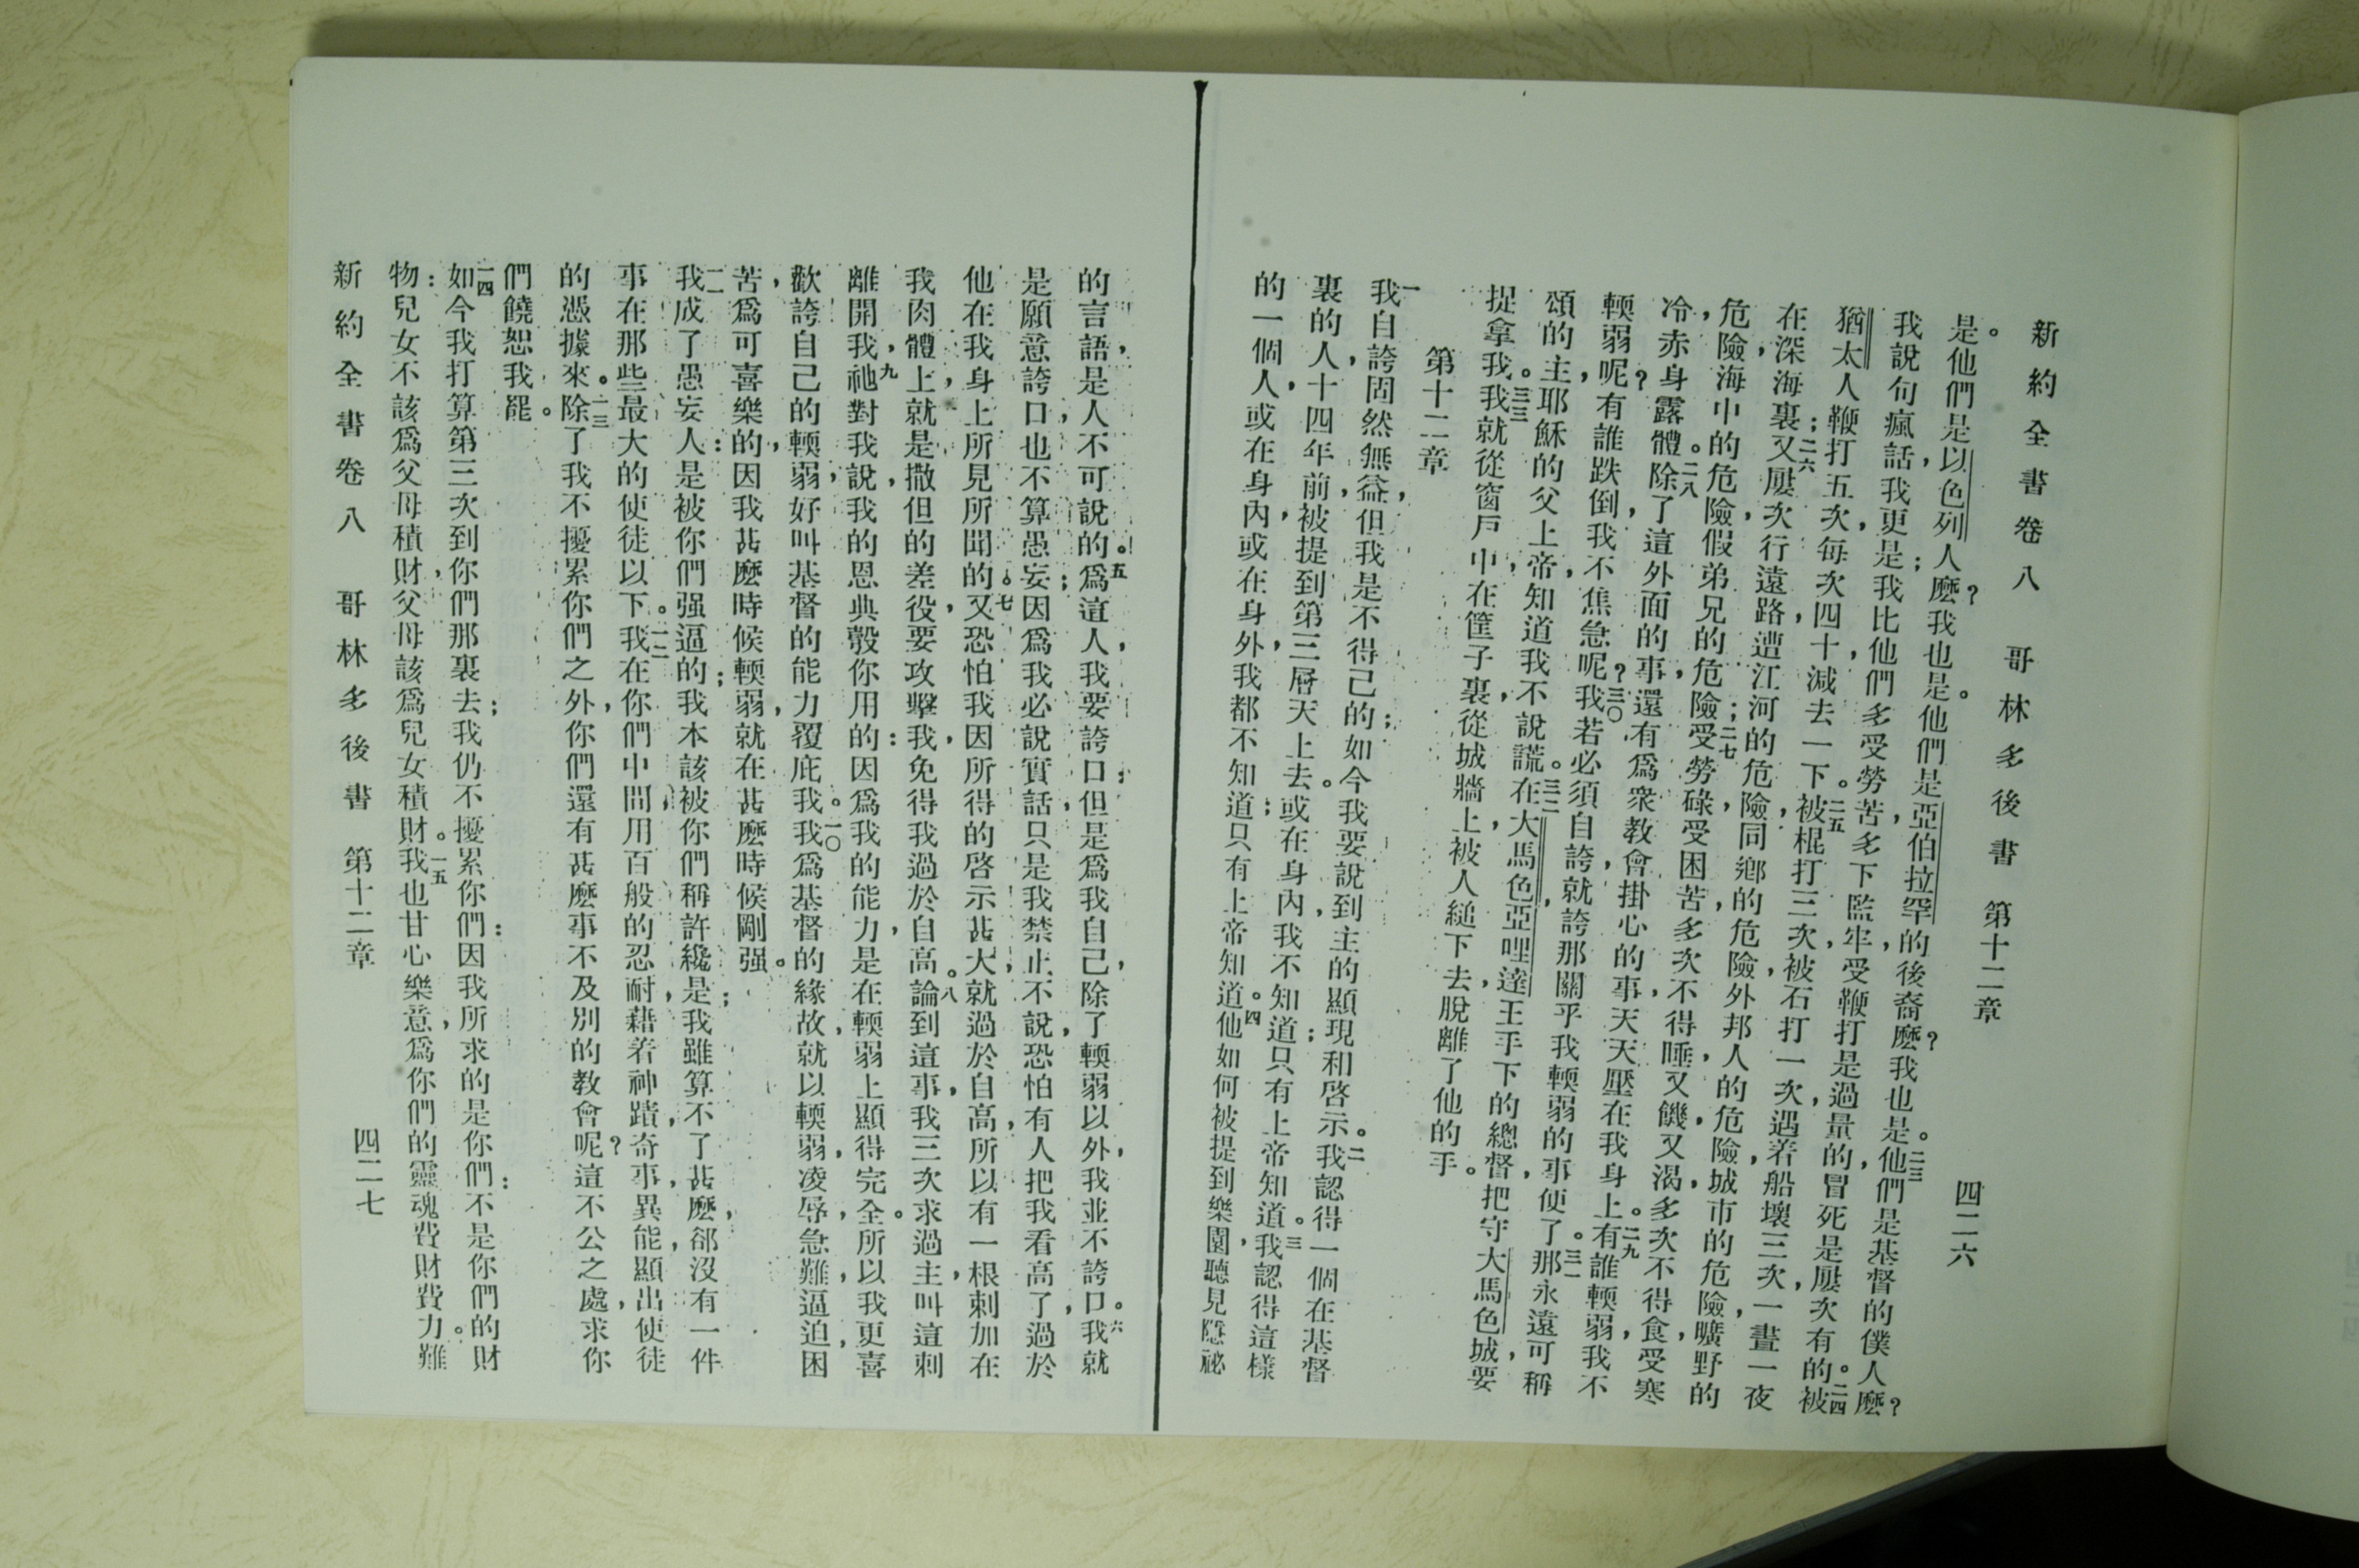 新約全書卷八 哥林多後書 第十二章 四二六
是。他們是以色列人麼?我也是。他們是亞伯拉罕的後裔麼?我也是。二三他們是基督的僕人麼?
我說句瘋話,我更是;我比他們多受勞苦,多下監牢,受鞭打是過量的,冒死是屢次有的。二四被
猶太人鞭打五次,每次四十,減去一下。二五被棍打三次,被石打一次,遇着船壞三次,一晝一夜
在深海裏;二六又屢次行遠路,遭江河的危險,同鄉的危險,外邦人的危險,城市的危險,曠野的
危險,海中的危險,假弟兄的危險;二七受勞碌,受困苦,多次不得睡,又饑又渴,多次不得食,受寒
冷,赤身露體。二八除了這外面的事,還有爲衆教會掛心的事,天天壓在我身上。二九有誰輭弱,我不
輭弱呢?有誰跌倒,我不焦急呢?三〇我若必須自誇,就誇那關乎我輭弱的事便了。三一那永遠可稱
頌的主耶穌的父上帝,知道我不說謊。三二在大馬色,亞哩達王手下的總督,把守大馬色城,要
捉拿我。三三我就從窗戶中,在筐子裏,從城牆上被人縋下去,脫離了他的手。
第十二章
一我自誇,固然無益,但我是不得已的;如今我要說到主的顯現和啓示。二我認得一個在基督
裏的人,十四年前,被提到第三層天上去。或在身內,我不知道;只有上帝知道。三我認得這樣
的一個人,或在身內,或在身外,我都不知道;只有上帝知道。四他如何被提到樂園,聽見隱祕
的言語,是人不可說的。五爲這人,我要誇口;但是爲我自己,除了輭弱以外,我並不誇口。六我就
是願意誇口,也不算愚妄;因爲我必說實話,只是我禁止不說,恐怕有人把我看高了,過於
他在我身上所見所聞的。七又恐怕我因所得的啓示甚大,就過於自高,所以有一根刺加在
我肉體上,就是撒但的差役,要攻擊我,免得我過於自高。八論到這事,我三次求過主,叫這刺
離開我,九祂對我說,我的恩典彀你用的:因爲我的能力,是在輭弱上顯得完全。所以我更喜
歡誇自己的輭弱,好叫基督的能力覆庇我。一〇我爲基督的緣故,就以輭弱,凌辱,急難,逼迫,困
苦,爲可喜樂的,因我甚麼時候輭弱,就在甚麼時候剛强。
一一我成了愚妄人:是被你們强逼的;我本該被你們稱許纔是;我雖算不了甚麼,卻沒有一件
事在那些最大的使徒以下。一二我在你們中間,用百般的忍耐,藉着神蹟,奇事,異能,顯出使徒
的憑據來。一三除了我不擾累你們之外,你們還有甚麼事不及別的教會呢?這不公之處,求你
們饒恕我罷。
一四如今我打算第三次到你們那裏去;我仍不擾累你們:因我所求的是你們:不是你們的財
物:兒女不該爲父母積財,父母該爲兒女積財。一五我也甘心樂意,爲你們的靈魂費財費力。難
新約全書卷八 哥林多後書 第十二章 四二七